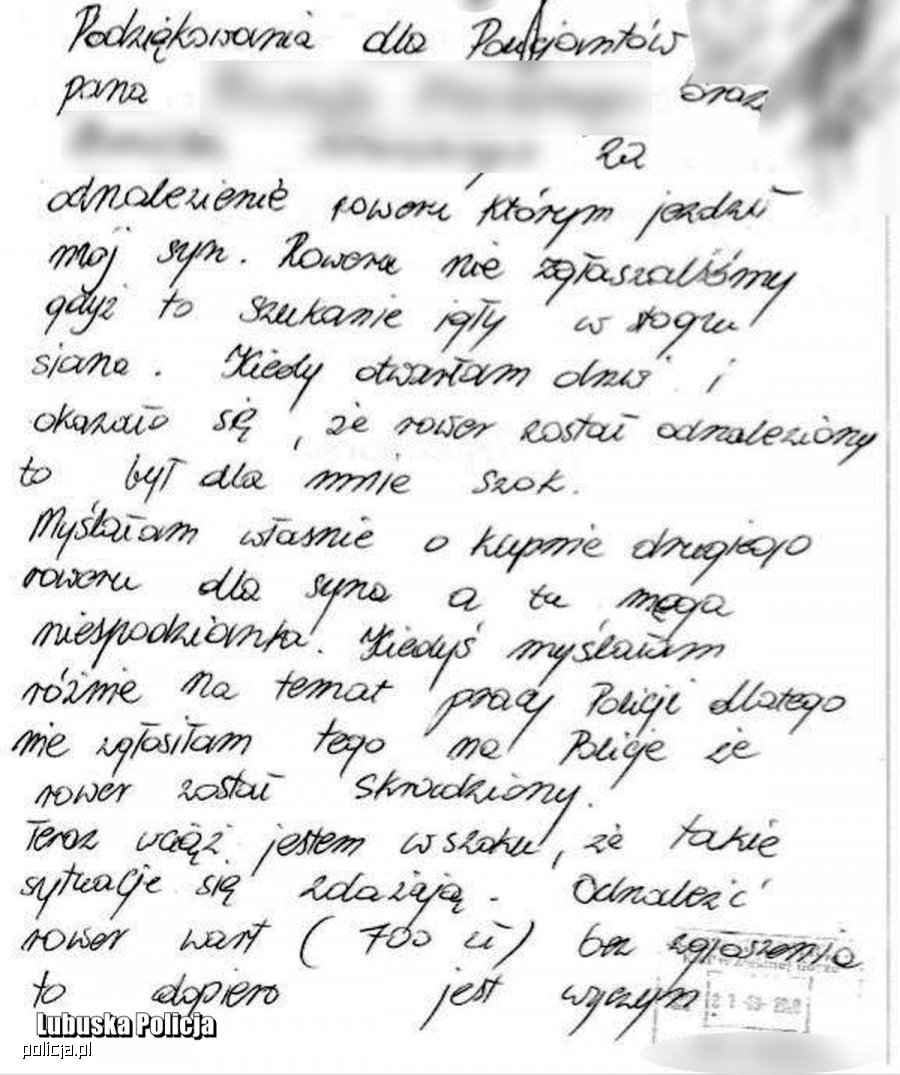 Podziękowania dla Policjantów
pana oraz
za
odnalezienie roweru którym jeździł
mój syn. Roweru nie zgłaszaliśmy
gdyż to szukanie igły w stogu
siana. Kiedy otwarłam drzwi i
okazało się, że rower został odnaleziony
to był dla mnie szok.
Myślałam własnie o kupnie drugiego
roweru dla syna a tu męga
niespodzianka. Kiedyś myślałam
różnie na temat pracy Policji dlatego
nie zgłosiłam tego na Policje że
rower został skradziony.
Teraz wciąż jestem w szoku, że takie
sytuacje się zdażają. Odnaleźć
rower wart (700 zł) bez zgłoszenia
to dopiero jest wyczym
Lubuska Policja
policja.pl